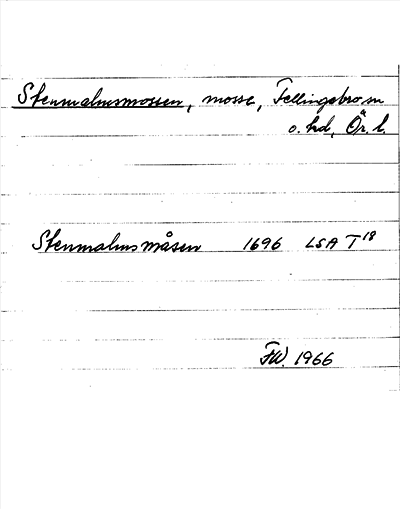 Stenmalmsmossen, mosse, Fellingsbro sn
o. hd, Ör. l.
Stenmalmsmåsen 1696 LSA T18
FW. 1966